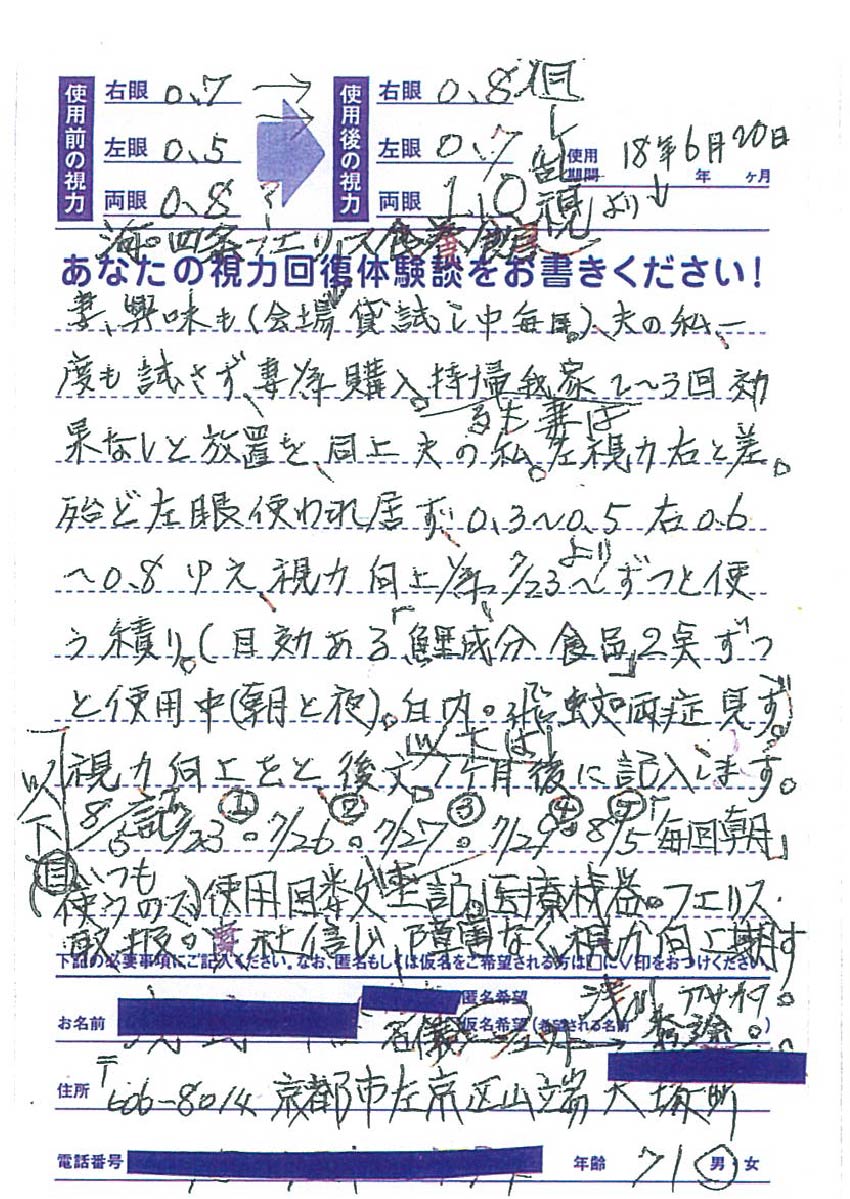 使用前の視力
右眼 0.7 →
左眼 0.5
両眼 0.8
使用後の視力
右眼 0.8
左眼 0.7
両眼 1.0
但し乱視
使用期間 年 ヶ月
18年6月20日
より
海の四条フェリス
あなたの視力回復体験談をお書きください!
妻、興味も(会場貸試し中毎日。)、夫の私、一
度も試さず、妻 購入。持帰我家2〜3回効
るも妻は
果ないと放置を、同上夫の私。左視力右と差。
殆ど左眼使われ居ず、0.3〜0.5 右0.6
〜0.8 ゆえ、視力向上 7/23より〜ずつと使
う積り。(目効ある「鯉成分食品」2 ずつ
と使用中(朝と夜)。白内。飛蚊両症見ず)
以下は
視力向上をと 後文、1ヶ月後に記入します。
以下8/5記
7/23①。7/26②。7/27③。7/29④。8/5⑤「毎回朝」
(目いつも使うので)使用回数は上記。医療機器。フェリス.
社信い、障害なく、視力向上期す
下記の必要事項にご記入ください。なお、匿名もしくは仮名をご希望される方は□に✓印をおつけください。
匿名希望
お名前
仮名希望(希望される名前 )
浅川 アサカワ。
住所 〒606-8014 京都市左京区山端大塚町
電話番号
年齢 71 男 女